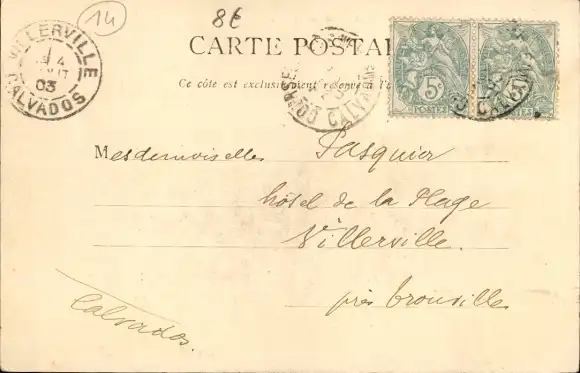 14
8€
VILLERVILLE
4
03
CALVADOS
CARTE POSTAL
Ce côté est exclusivement réservé à l'a
5c
POSTES
CALVADOS
Mesdemoiselles Pasquier
hôtel de la Plage
Villerville.
près trouville
Calvados.